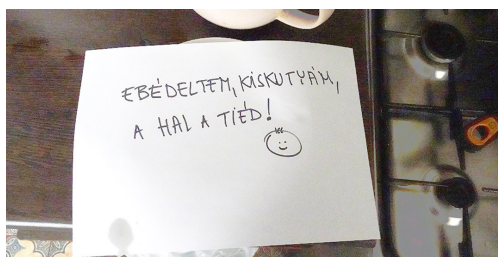 EBÉDELTEM, KISKUTYÁM,
A HAL A TIÉD!